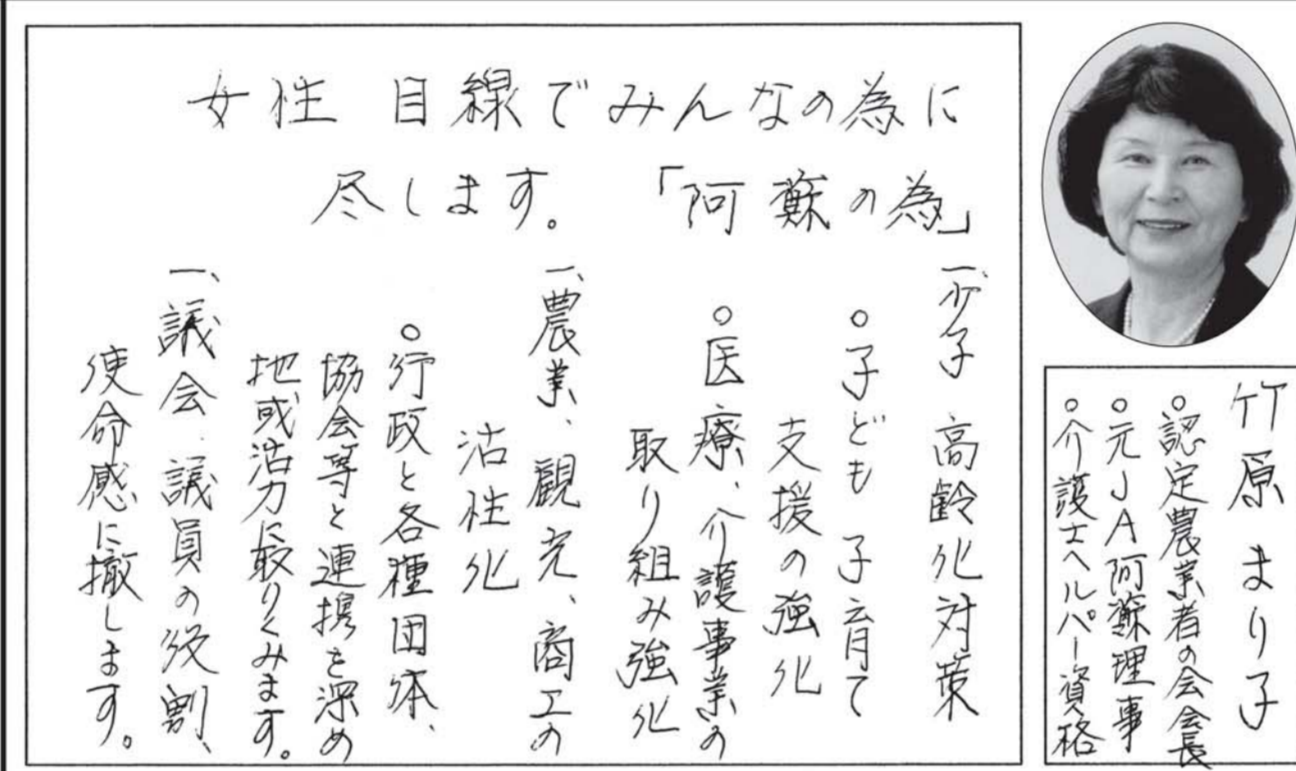 女性 目線でみんなの為に
尽します。「阿蘇の為」
一、少子 高齢化対策
○子ども 子育て
支援の強化
○医療、介護事業の
取り組み強化
一、農業、観光、商工の
活性化
○行政と各種団体、
協会等と連携を深め
地域活力に取りくみます。
一、議会、議員の役割、
使命感に撤します。
竹原 まり子
○認定農業者の会会長
○元JA阿蘇理事
○介護士ヘルパー資格